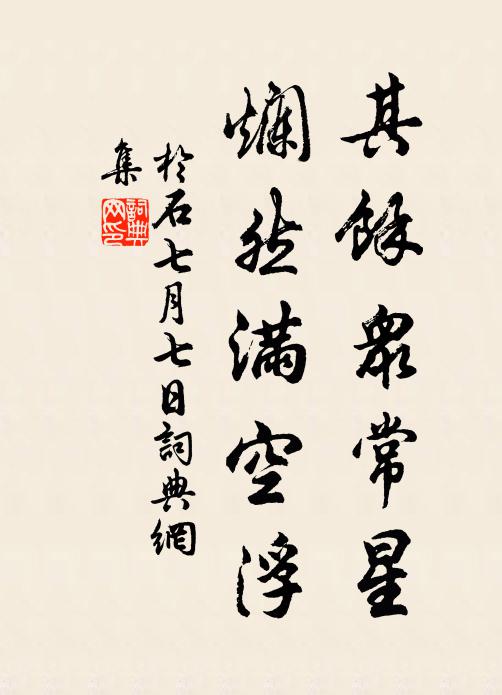 其餘眾常星
爛然滿空浮
於石七月七日詞典網
集
詞典
网印